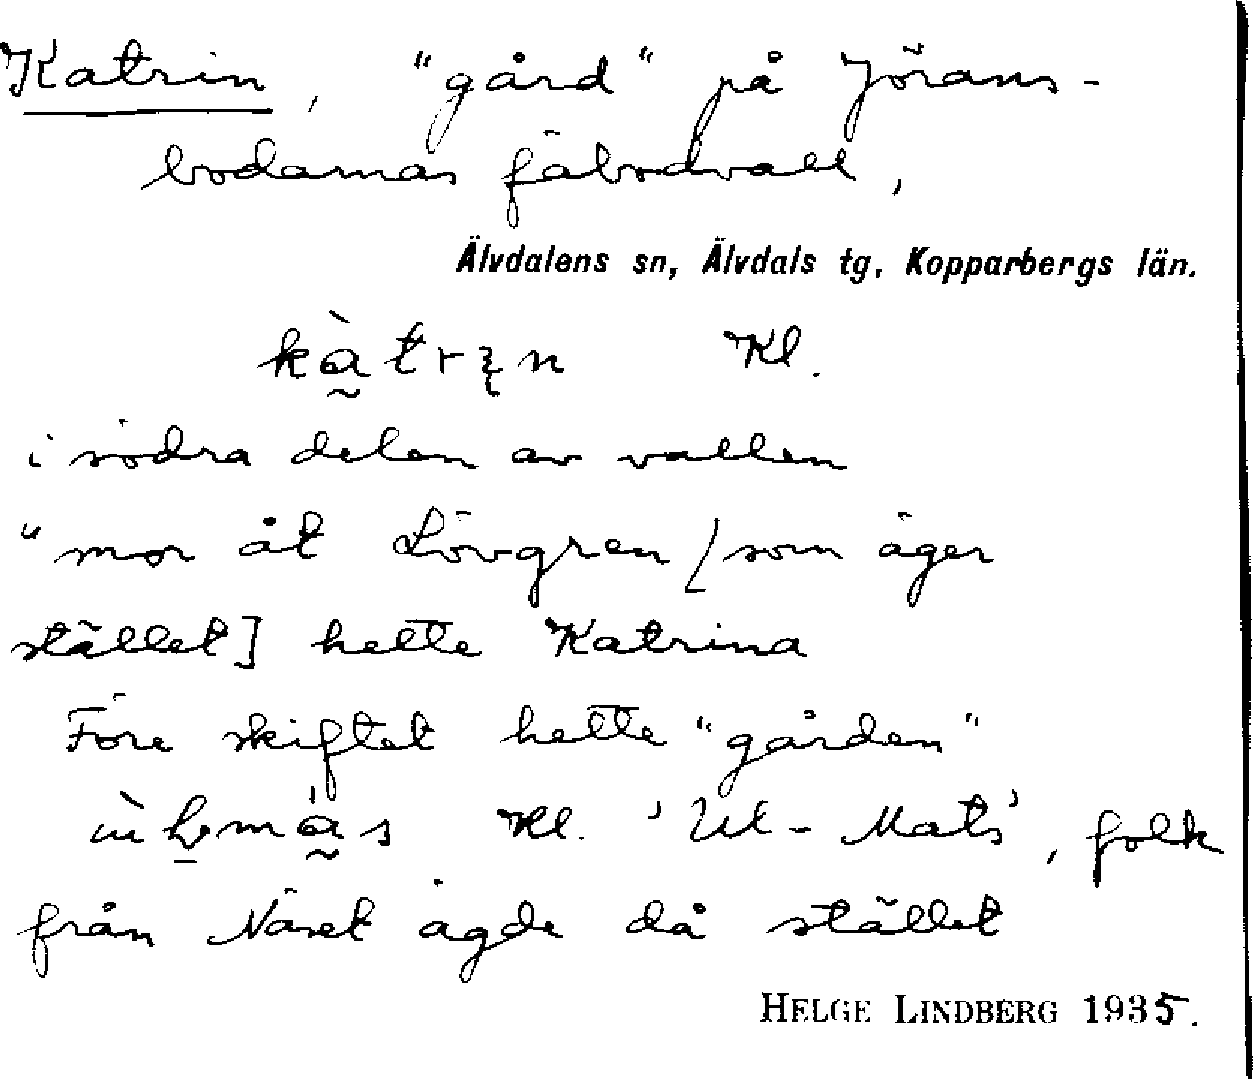 Katrin, "gård" på Jörans-
bodarnas fäbodvall,
Älvdalens sn, Älvdals tg, Kopparbergs län.
Kl.
i södra delen av vallen
"mor åt Lövgren [som äger
stället] hette Katrina
Före skiftet hette "gården"
Kl. 'Ul-Mats', folk
från Näset ägde då stället
HELGE LINDBERG 1935.